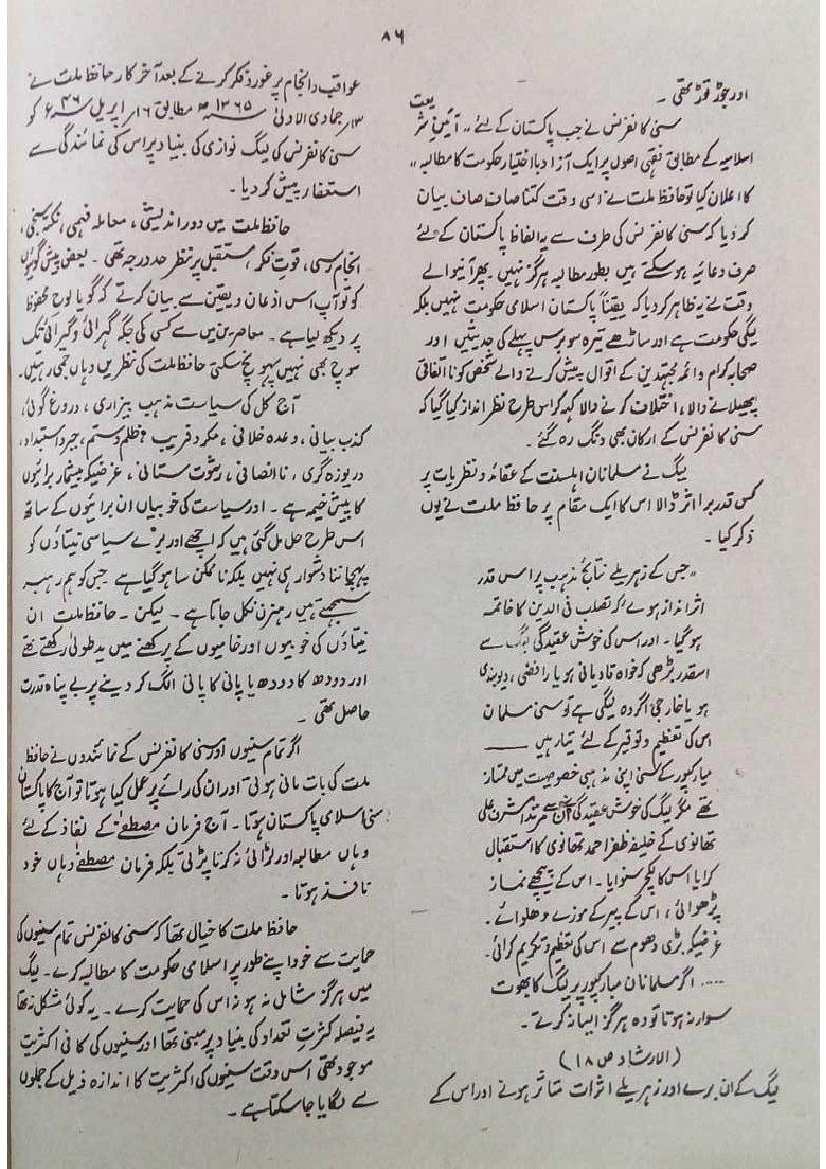 ۸۶
اور جوڑ توڑ تھی ۔
سنی کانفرنس نے جب پاکستان کے لئے ،، آئین شریعت
اسلامیہ کے مطابق فقہی اصول پر ایک آزاد با اختیار حکومت کا مطالبہ ،،
کا اعلان کیا تو حافظ ملت نے اسی وقت کتنا صاف صاف بیان
کر دیا کہ سنی کانفرنس کی طرف سے یہ الفاظ پاکستان کے لئے
صرف دعائیہ ہو سکتے ہیں بطور مطالبہ ہرگز نہیں ۔ پھر آنیوالے
وقت نے یہ ظاہر کر دیا کہ یقیناً پاکستان اسلامی حکومت نہیں بلکہ
لیگی حکومت ہے اور ساڑھے تیرہ سو برس پہلے کی حدیثیں اور
صحابہ کرام و ائمہ مجتہدین کے اقوال پیش کرنے والے شخص کو نا اتفاقی
پھیلانے والا ، اختلاف کرنے والا کہہ کر اس طرح نظر انداز کیا گیا کہ
سنی کانفرنس کے ارکان بھی دنگ رہ گئے ۔
لیگ نے مسلمانان اہلسنت کے عقائد و نظریات پر
کس قدر برا اثر ڈالا اس کا ایک مقام پر حافظ ملت نے یوں
ذکر کیا ۔
،،جس کے زہریلے نتائج مذہب پر اس قدر
اثر انداز ہوئے کہ تصلب فی الدین کا خاتمہ
ہو گیا ۔ اور اس کی خوش عقیدگی لیگ سے
اسقدر بڑھی کہ خواہ قادیانی ہو یا رافضی ، دیوبندی
ہو یا خارجی اگر وہ لیگی ہے تو سنی مسلمان
اس کی تعظیم و توقیر کے لئے تیار ہیں ـــــــ
مبارکپور کے سنی اپنی مذہبی خصوصیت میں ممتاز
تھے مگر لیگ کی خوش عقیدگی اشرف علی
تھانوی کے خلیفہ ظفر احمد تھانوی کا استقبال
کرایا اس کا لکچر سنوایا ۔ اس کے پیچھے نماز
پڑھوائی ، اس کے پیر کے موزے دھلوائے ۔
غرضیکہ بڑی دھوم سے اس کی تعظیم و تکریم کرائی ۔
..... اگر مسلمانان مبارکپور پر لیگ کا بھوت
سوار نہ ہوتا تو وہ ہرگز ایسا نہ کرتے ۔
(الارشاد ص ۱۸)
لیگ کے ان برے اور زہریلے اثرات متاثر ہونے اور اس کے
عواقب و انجام پر غور و فکر کرنے کے بعد آخر کار حافظ ملت نے
۱۳ر جمادی الاولیٰ ۱۳۶۵ھ مطابق ۱۶ر اپریل ۴۶ء کو
سنی کانفرنس کی لیگ نوازی کی بنیاد پر اس کی نمائندگی سے
استعفار پیش کر دیا ۔
حافظ ملت میں دور اندیشی ، معاملہ فہمی ، نکتہ سنجی ،
انجام رسی ، قوت فکر ، مستقبل پر نظر حد درجہ تھی ۔ بعض پیش گوئیوں
کو تو آپ اس اذعان و یقین سے بیان کرتے کہ گویا لوح محفوظ
پر دیکھ لیا ہے ۔ معاصرین میں سے کسی کی جگہ گہرائی و گیرائی تک
سوچ بھی نہیں پہونچ سکتی حافظ ملت کی نظریں وہاں جمی رہتیں ۔
آج کل کی سیاست مذہب بیزاری ، دروغ گوئی ،
کذب بیانی ، وعدہ خلافی ، مکر و فریب ، ظلم و ستم ، جبر و استبداد ،
دریوزہ گری ، نا انصافی ، رشوت ستانی ، غرضیکہ بیشمار برائیوں
کا پیش خیمہ ہے ۔ اور سیاست کی خوبیاں ان برائیوں کے ساتھ
اس طرح حل مل گئی ہیں کہ اچھے اور برے سیاسی نیتاؤں کو
پہچاننا دشوار ہی نہیں بلکہ نا ممکن سا ہو گیا ہے جس کو ہم رہبر
سمجھتے ہیں رہزن نکل جاتا ہے ۔ لیکن ۔ حافظ ملت ان
نیتاؤں کی خوبیوں اور خامیوں کے پرکھنے میں ید طولیٰ رکھتے تھے
اور دودھ کا دودھ یا پانی کا پانی الگ کر دینے پر بے پناہ قدرت
حاصل تھی ۔
اگر تمام سنیوں اور سنی کانفرنس کے نمائندوں نے حافظ
ملت کی بات مانی ہوتی اور ان کی رائے پر عمل کیا ہوتا تو آج کا پاکستان
سنی اسلامی پاکستان ہوتا ۔ آج فرمان مصطفےٰ کے نفاذ کے لئے
وہاں مطالبہ اور لڑائی نہ کرنا پڑتی بلکہ فرمان مصطفےٰ وہاں خود
نافذ ہوتا ۔
حافظ ملت کا خیال تھا کہ سنی کانفرنس تمام سنیوں کی
حمایت سے خود اپنے طور پر اسلامی حکومت کا مطالبہ کرے ۔ لیگ
میں ہرگز شامل نہ ہو نہ اس کی حمایت کرے ۔ یہ کوئی مشکل نہ تھا
یہ فیصلہ کثرت تعداد کی بنیاد پر مبنی تھا اور سنیوں کی کافی اکثریت
موجود تھی اس وقت سنیوں کی اکثریت کا اندازہ ذیل کے جملوں
سے لگایا جا سکتا ہے ۔